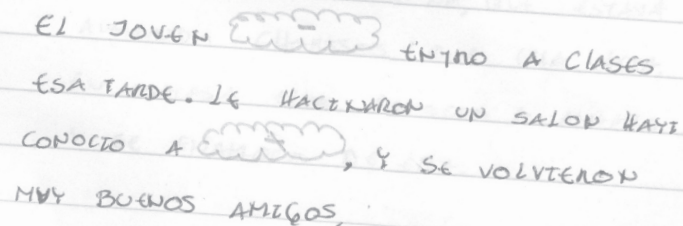 EL JOVEN ENTRO A CLASES
ESA TARDE. LE HACINARON UN SALON HAYI
CONOCIO A , Y SE VOLVIERON
MUY BUENOS AMIGOS.